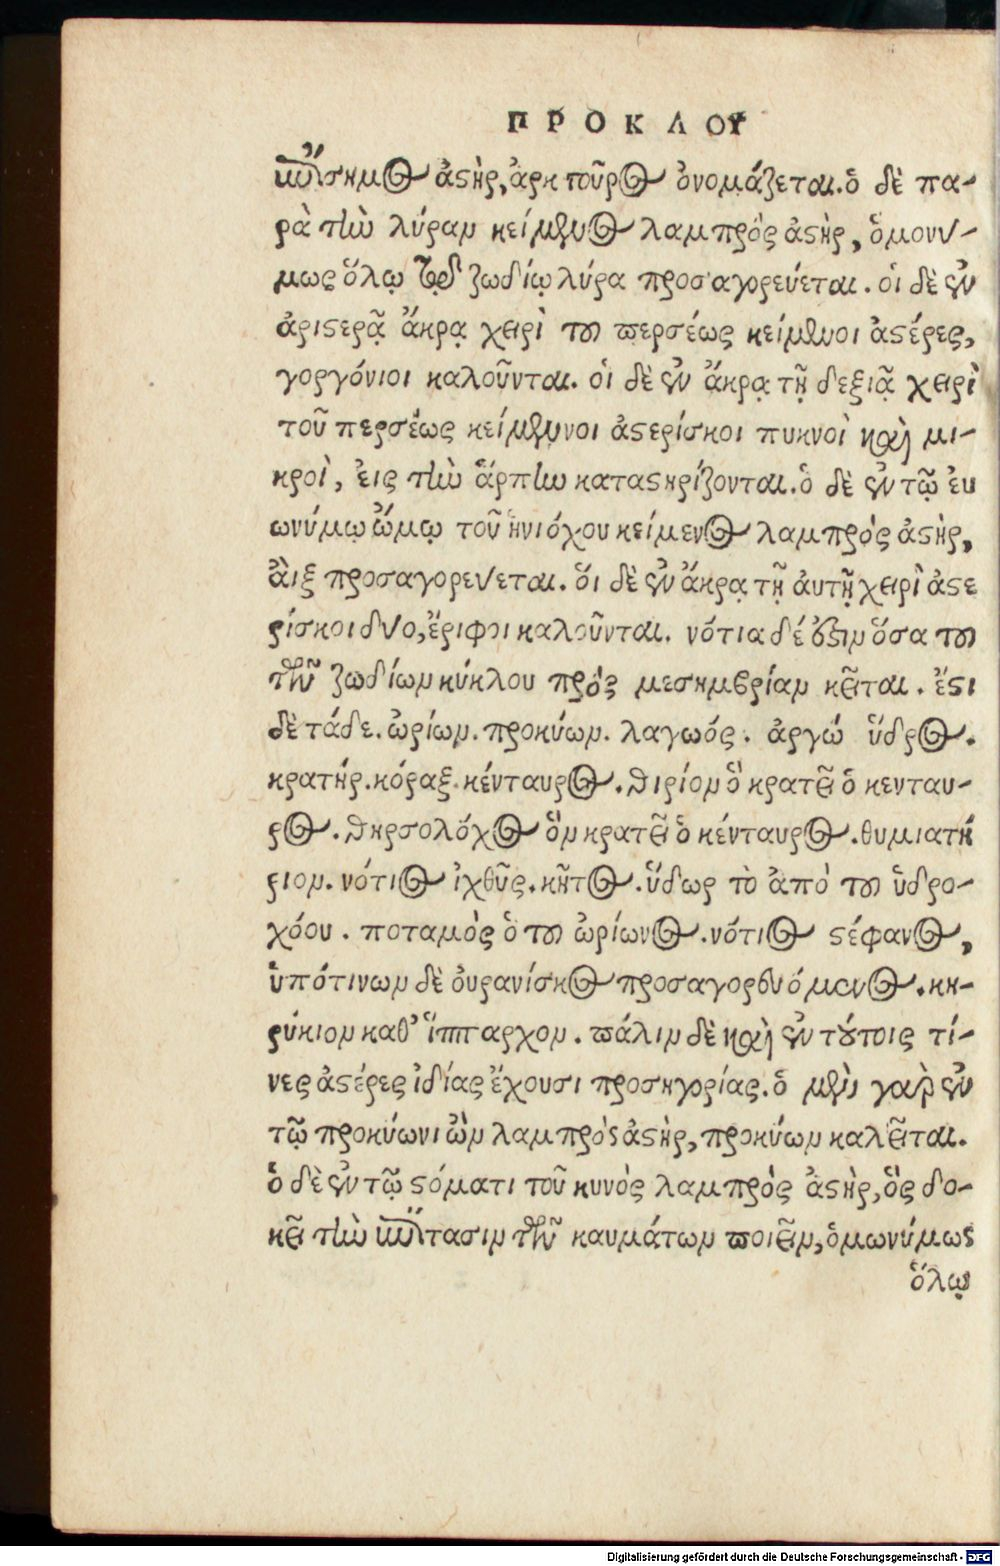 ΠΡΟΚΛΟΥ
ἐπίσημος ἀστὴρ, ἀρκτοῦρος ὀνομάζεται. ὁ δὲ πα-
ρὰ τὴν λύραν κείμενος λαμπρὸς ἀστὴρ, ὁμονύ-
μως ὅλῳ τῷ ζωδίῳ λύρα προσαγορεύεται. οἱ δὲ ἐν
ἀριστερᾷ ἄκρᾳ χειρὶ του περσέως κείμενοι ἀστέρες,
γοργόνιοι καλοῦνται. οἱ δὲ ἐν ἄκρᾳ τῇ δεξιᾷ χειρὶ
τοῦ περσέως κείμενοι ἀστερίσκοι πυκνοὶ καὶ μι-
κροὶ, εἰς τὴν ἅρπην καταστηρίζονται. ὁ δὲ ἐν τῷ ἐυ
ωνύμῳ ὤμῳ τοῦ ἡνιόχου κείμενος λαμπρὸς ἀστὴρ,
ἂιξ προσαγορεύεται. ὅι δὲ ἐν ἄκρᾳ τῇ ἀυτῇ χειρὶ ἀστε
ρίσκοι δύο, ἔριφοι καλοῦνται. νότια δέ ἐστιν ὅσα του
τῶν ζωδίων κύκλου πρὸς μεσημβρίαν κεῖται. ἔστι
δὲ τάδε. ὠρίων. προκύων. λαγωός. ἀργώ ὕδρος.
κρατήρ. κόραξ. κένταυρος. θιρίον ὃ κρατεῖ ὁ κενταυ-
ρος. θηρσολόχος ὃν κρατεῖ ὁ κένταυρος. θυμιατή
ριον. νότιος ἰχθῦς. κῆτος. ὕδωρ τὸ ἀπό του ὑδρο-
χόου. ποταμὸς ὁ του ὠρίωνος. νότιος στέφανος,
ὑπότινων δὲ ὀυρανίσκος προσαγορευόμενος. κη-
ρύκιον καθ’ ἵππαρχον. πάλιν δὲ καὶ ἐν τούτοις τί-
νες ἀστέρες ἰδίας ἔχουσι προσηγορίας. ὁ μὲν γαὰρ ἐν
τῷ προκύωνι ὢν λαμπρὸς ἀστὴρ, προκύων καλεῖται.
ὁ δὲ ἐν τῷ στόματι τοῦ κυνὸς λαμπρὸς ἀστὴρ, ὃς δο-
κεῖ τὴν ἐπίτασιν τῶν καυμάτων ποιεῖν, ὁμωνύμως
ὅλῳ
Digitalisierung gefördert durch die Deutsche Forschungsgemeinschaft - DFG